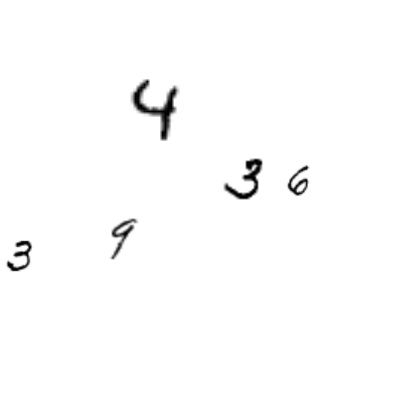 4
3 6
3 9